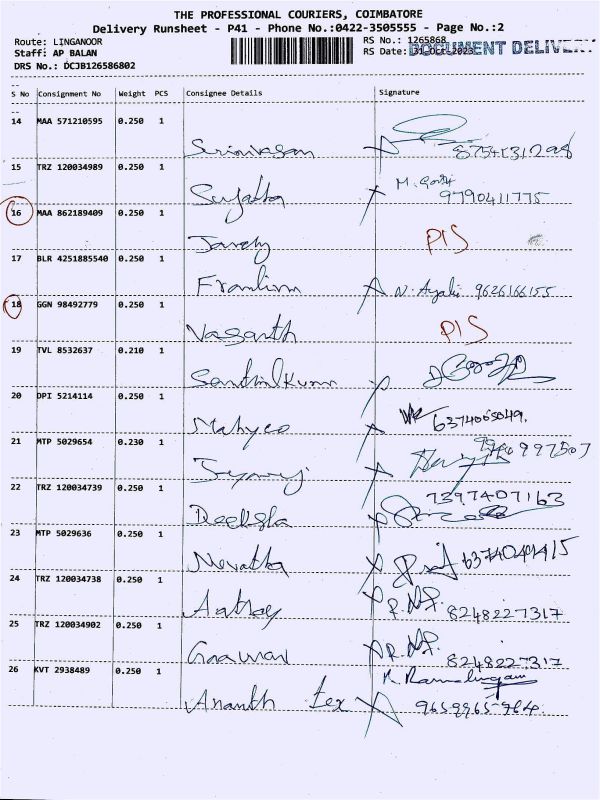 THE PROFESSIONAL COURIERS, COIMBATORE
Delivery Runsheet - P41 - Phone No.:0422-3505555 - Page No.:2
Route: LINGANOOR RS No.: 1265868
Staff: AP BALAN RS Date: 31-Oct-2023 DOCUMENT DELIVE
DRS No.: DCJB126586802
S No Consignment No Weight PCS Consignee Details Signature
14 MAA 571210595 0.250 1
Srinivasan
15 TRZ 120034989 0.250 1
Sujatha M. 9790411775
16 MAA 862189409 0.250 1
PIS
17 BLR 4251885540 0.250 1
Franlinn N. 9626166155
18 GGN 98492779 0.250 1
Vasanth PIS
19 TVL 8532637 0.210 1
Senthilkumar
20 DPI 5214114 0.250 1
Mahyco 6374065049.
21 MTP 5029654 0.230 1
22 TRZ 120034739 0.250 1 7397407163
Deeksha
23 MTP 5029636 0.250 1
Nivatha
24 TRZ 120034738 0.250 1
8248227317
25 TRZ 120034902 0.250 1
8248227317
26 KVT 2938489 0.250 1 Ramalingam
Ananth tex 9659965964.